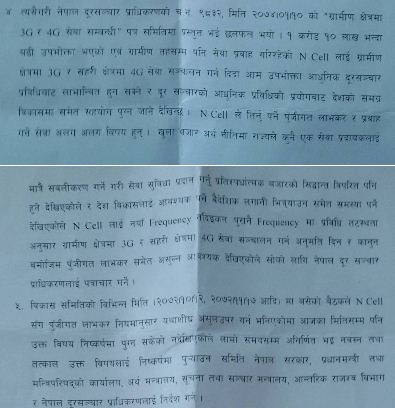 ४ त्यसैगरी नेपाल दूरसञ्चार प्राधिकरणको च.नं. ९८३२, मिति २०७४।०१।१० को "ग्रामीण क्षेत्रमा
3G र 4G सेवा सम्बन्धी" पत्र समितिमा प्रस्तुत भई छलफल भयो । १ करोड १० लाख भन्दा
बढी उपभोक्ता भएको एवं ग्रामीण तहसम्म पनि सेवा प्रवाह गरिरहेको N Cell लाई ग्रामीण
क्षेत्रमा 3G र सहरी क्षेत्रमा 4G सेवा सञ्चालन गर्न दिंदा आम उपभोक्ता आधुनिक दूरसञ्चार
प्रविधिबाट लाभान्वित हुन सक्ने र दूर सञ्चारको आधुनिक प्रविधिको प्रयोगबाट देशको समग्र
विकासमा समेत सहयोग पुग्न जाने देखिन्छ । N Cell ले तिर्नु पर्ने पुंजीगत लाभकर र प्रवाह
गर्ने सेवा अलग अलग विषय हुन् । खुला बजार अर्थ नीतिमा राज्यले कुनै एक सेवा प्रदायकलाई
मात्रै सबलीकरण गर्ने गरी सेवा सुविधा प्रदान गर्नु प्रतिस्पर्धात्मक बजारको सिद्धान्त विपरित पनि
हुने देखिएकोले र देश विकासलाई आवश्यक पर्ने बैदेशिक लगानी भित्र्याउन समेत समस्या पर्ने
देखिएकोले N Cell लाई नयाँ Frequency नदिइकन पुरानै Frequency मा प्रविधि तटस्थता
अनुसार ग्रामीण क्षेत्रमा 3G र सहरी क्षेत्रमा 4G सेवा सञ्चालन गर्न अनुमति दिन र कानुन
बमोजिम पुंजीगत लाभकर समेत असुल्न आवश्यक देखिएकोले सोको लागि नेपाल दूर सञ्चार
प्राधिकरणलाई पत्राचार गर्ने ।
५. विकास समितिको विभिन्न मिति (२०७२।१०।१२, २०७२।११।७ आदि) मा बसेको बैठकले N Cell
संग पुंजीगत लाभकर नियमानुसार यथाशीघ्र असुलउपर गर्न भनिएकोमा आजका मितिसम्म पनि
उक्त विषय निष्कर्षमा पुग्न सकेको नदेखिएकोले लामो समयसम्म अनिर्णित भइ नबस्न तथा
तत्काल उक्त विषयलाई निष्कर्षमा पुर्‍याउन समिति नेपाल सरकार, प्रधानमन्त्री तथा
मन्त्रिपरिषद्को कार्यालय, अर्थ मन्त्रालय, सूचना तथा सञ्चार मन्त्रालय, आन्तरिक राजस्व विभाग
र नेपाल दूरसञ्चार प्राधिकरणलाई निर्देश गर्ने ।